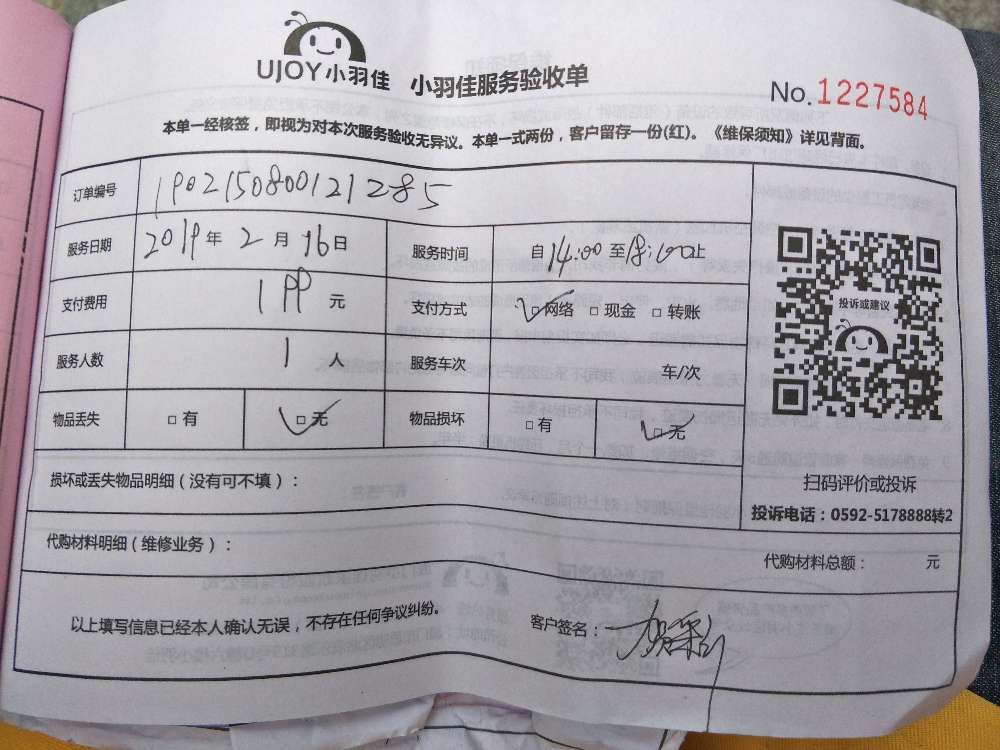 UJOY小羽佳 小羽佳服务验收单
No.1227584
本单一经核签，即视为对本次服务验收无异议。本单一式两份，客户留存一份(红)。《维保须知》详见背面。
订单编号 190215080012128５
服务日期 2019年 2月 16日 服务时间 自14:00至18:00止
支付费用 199 元 支付方式 □网络 □现金 □转账
投诉或建议
服务人数 1 人 服务车次 车/次
物品丢失 □有 □无 物品损坏 □有 □无
损坏或丢失物品明细（没有可不填）：
扫码评价或投诉
投诉电话：0592-5178888转2
代购材料明细（维修业务）：
代购材料总额： 元
以上填写信息已经本人确认无误，不存在任何争议纠纷。
客户签名：